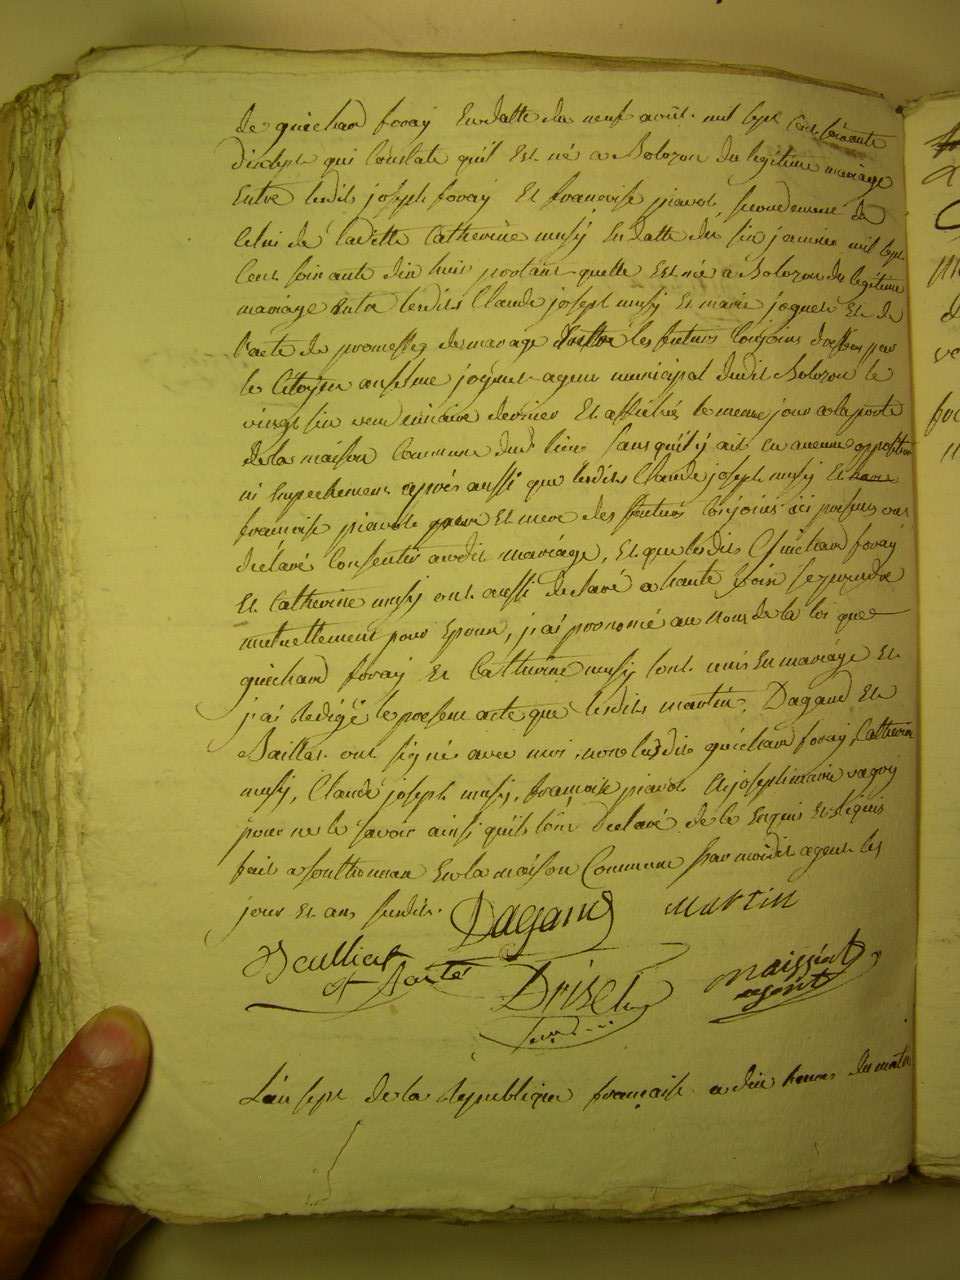 de guichard foray En datte du neuf août mil sept cent soixante
dixsept qui Constate qu'il Est né a Bolozon du legitime mariage
Entre lesdits joseph foray Et françoise piavot, secondement de
Celui de laditte Catherine musy En datte du six janvier mil sept
Cent soixante dix huit portant quelle Est née a Bolozon du legitime
mariage Entre lesdits Claude joseph musy Et marie joguet Et de
l'acte de promesses de mariage Entre les futurs Conjoins dressé par
le Citoyen anselme joguet agent municipal dudit Bolozon le
vingt six vendemiaire dernier Et affiché le meme jour a la porte
de la maison Commune dud. lieu sans qu'il y ait eu aucune opposition
ni Empechement après aussi que lesdits Claude joseph musy Et
françoise piavot pere Et mere des futurs Conjoins ici presens ont
déclaré Consentir audit mariage, Et que lesdits Guichard foray
Et Catherine musy ont aussi declaré a haute voix se prendre
mutuellement pour Epoux, j'ai prononcé au nom de la loi que
guichard foray Et Catherine musy sont unis En mariage Et
j'ai Redigé le present acte que lesdits martin, Dagand Et
Baillat ont signé avec moi, non lesdits guichard foray, Catherine
musy, Claude joseph musy, françoise piavot Et joseph marie
pour ne le savoir ainsi qu'ils l'ont declaré de ce Enquis Et Requis
fait a sonthonnax En la maison Commune par moidit agent les
jour Et an susdits.
Dagand martin
Drisel maissiat
agent
L'an sept de la Republique française a dix heures du matin